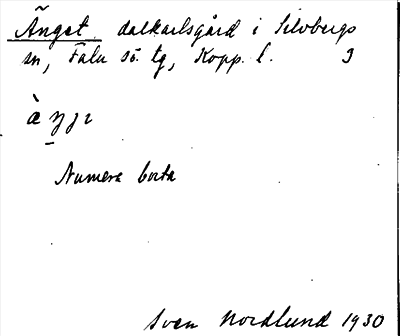 Änget dalkarlsgård i Silvbergs
sn, Falu sö. tg, Kopp. l. 3
Numera borta
Sven Nordlund 1930